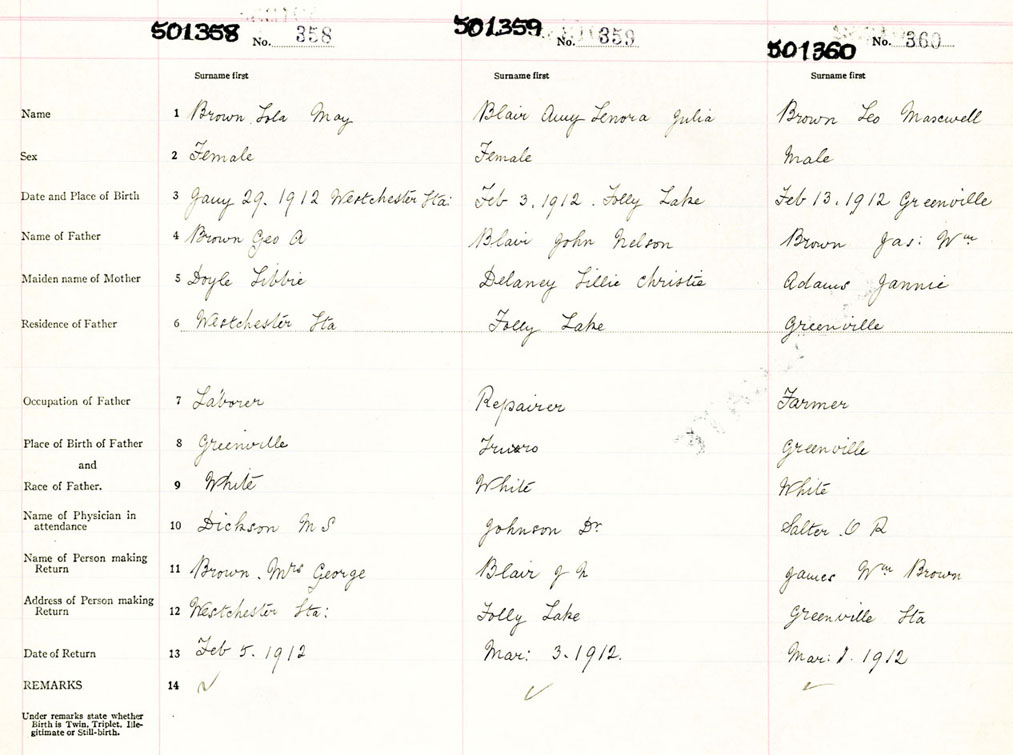 501358 No. 358 501359 No. 359 501360 No. 360
Surname first Surname first Surname first
Name 1 Brown Lola May Blair Amy Lenora Julia Brown Leo Maxwell
Sex 2 Female Female Male
Date and Place of Birth 3 Jany 29. 1912 Westchester Sta: Feb 3. 1912. Folly Lake Feb 13. 1912 Greenville
Name of Father 4 Brown Geo A Blair John Nelson Brown Jas: Wm
Maiden name of Mother 5 Doyle Libbie Delaney Lillie Christie Adams Jannie
Residence of Father 6 Westchester Sta Folly Lake Greenville
Occupation of Father 7 Laborer Repairer Farmer
Place of Birth of Father 8 Greenville Truro Greenville
and
Race of Father. 9 White White White
Name of Physician in
attendance 10 Dickson M S Johnson Dr. Salter. O R
Name of Person making
Return 11 Brown. Mrs George Blair J N James Wm Brown
Address of Person making
Return 12 Westchester Sta: Folly Lake Greenville Sta
Date of Return 13 Feb 5. 1912 Mar: 3. 1912. Mar: 1. 1912
REMARKS 14
Under remarks state whether
Birth is Twin, Triplet, Ille-
gitimate or Still-birth.